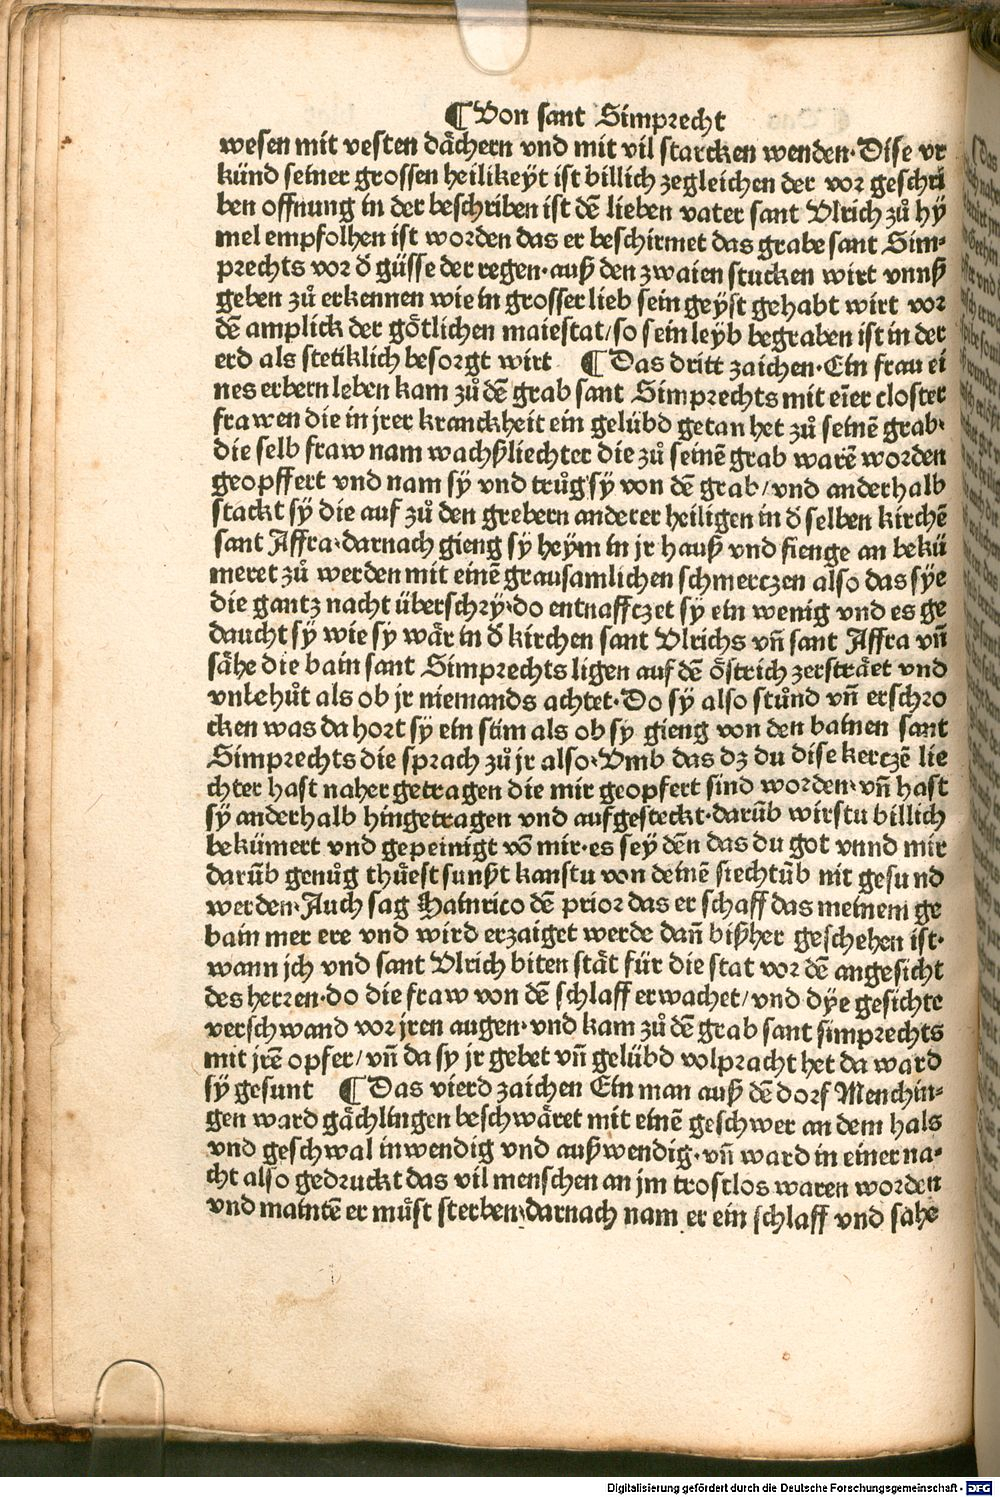 ¶ Von sant Simprecht
wesen mit vesten dächern vnd mit vil starcken wenden· Dise vr
künd seiner grossen heilikeyt ist billich zegleichen der vor geschri
ben offnung in der beschriben ist dē lieben vater sant Vlrich zů hy
mel empfolhen ist worden das er beschirmet das grabe sant Sim⸗
prechts vor d̕ güsse der regen· auß den zwaien stucken wirt vnnß
geben zů erkennen wie in grosser lieb sein geÿst gehabt wirt vor
dē amplick der götlichen maiestat/ so sein leÿb begraben ist in der
erd als stetiklich besorgt wirt ¶ Das dritt zaichen· Ein frau ei
nes erbern leben kam zů dē grab sant Simprechts mit eīer closter
frawen die in jrer kranckheit ein gelübd getan het zů seinē grab·
die selb fraw nam wachßliechter die zů seinē grab warē worden
geopffert vnd nam sÿ vnd trůg sÿ von dē grab/ vnd anderhalb
stackt sÿ die auf zů den grebern anderer heiligen in d̕ selben kirchē
sant Affra· darnach gieng sÿ heÿm in jr hauß vnd fienge an bekü
meret zů werden mit einē grausamlichen schmerczen also das sÿe
die gantz nacht überschrÿ· do entnaffczet sÿ ein wenig vnd es ge
daucht sÿ wie sy wär in d̕ kirchen sant Vlrichs vn̄ sant Affra vn̄
sähe die bain sant Simprechts ligen auf dē östrich zersträet vnd
vnbehůt als ob jr niemands achtet· Do sÿ also stůnd vn̄ erschro
cken was da hort sÿ ein stim als ob sy gieng von den bainen sant
Simprechts die sprach zů jr also· Vmb das dz du dise kerczē lie
chter hast naher getragen die mir geopfert sind worden· vn̄ hast
sÿ anderhalb hingetragen vnd aufgesteckt· darūb wirstu billich
bekümert vnd gepeinigt vō mir· es seÿ dēn das du got vnnd mir
darūb genůg thüest sunßt kanstu von deinē siechtūb nit gesund
werden· Auch sag Hainrico dē prior das er schaff das meinem ge
bain mer ere vnd wird erzaiget werde dan̄ bißher geschehen ist·
wann jch vnd sant Vlrich biten stät für die stat vor dē angesicht
des herren· do die fraw von dē schlaff erwachet/ vnd dÿe gesichte
verschwand vor jren augen· vnd kam zů dē grab sant simprechts
mit jrē opfer/ vn̄ da sy jr gebet vn̄ gelübd volpracht het da ward
sÿ gesunt ¶ Das vierd zaichen Ein man auß dē dorf Menchin⸗
gen ward gächlingen beschwäret mit einē geschwer an dem hals
vnd geschwal inwendig vnd außwendig· vn̄ ward in einer na⸗
cht also gedruckt das vil menschen an jm trostlos waren worden
vnd maintē er můst sterben· darnach nam er ein schlaff vnd sahe
Digitalisierung gefördert durch die Deutsche Forschungsgemeinschaft - DFG